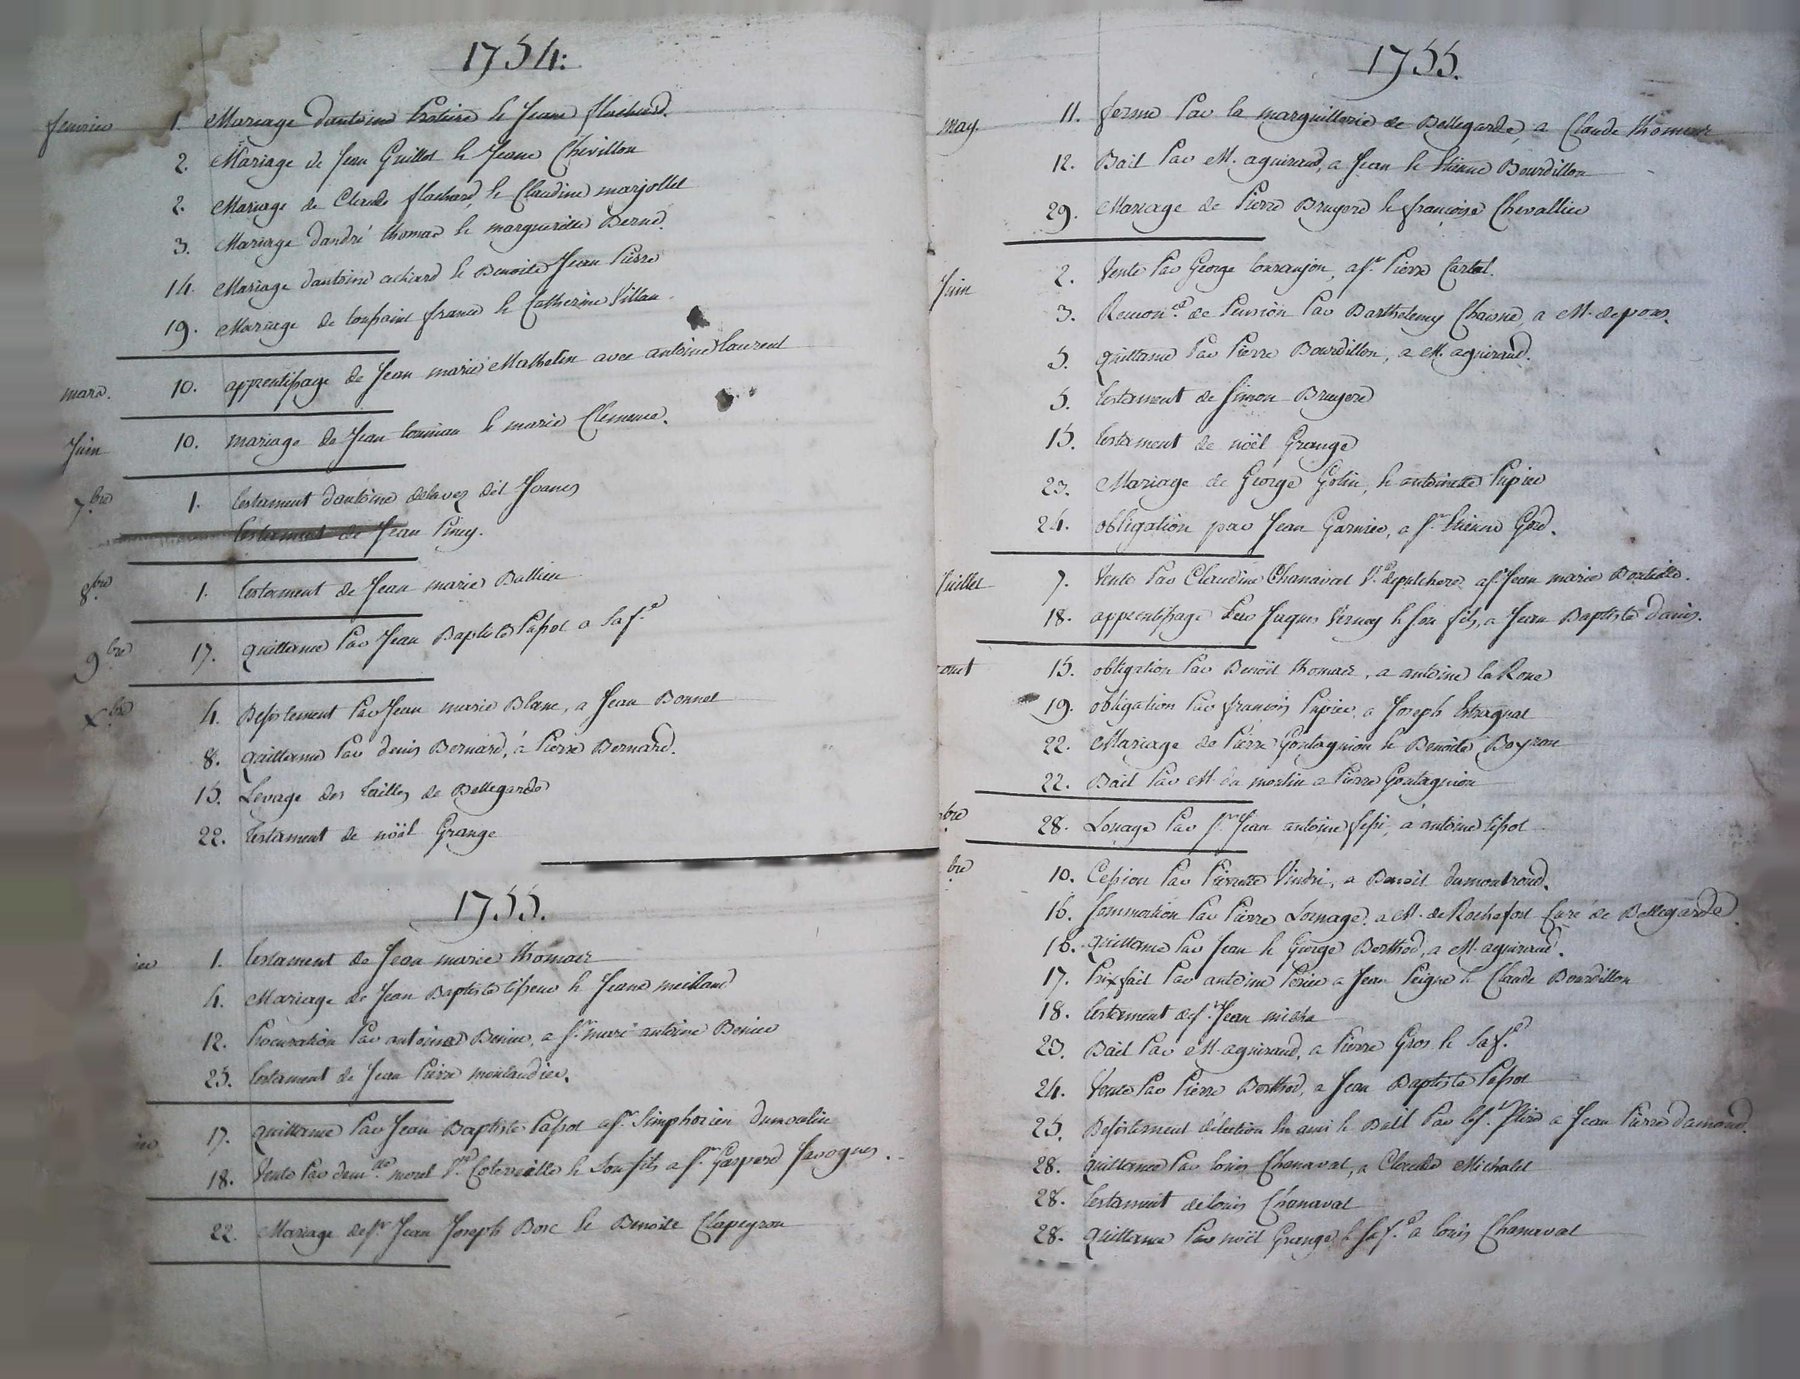 1754:
feuvrier 1. Mariage dantoine & Jeane flachard.
2. Mariage de Jean Guillot & Jeane Chevillon
2. Mariage de Claude flachard, & Claudine marjollet
3. Mariage dandré thomas & margueritte Berne.
14. Mariage dantoine achard & Benoite Jean Pierre
19. Mariage de toussaint france & Catherine Villau
mars. 10. apprentissage de Jean marie Mathelin avec antoine Laurent
Juin 10. mariage de Jean & marie Clemence.
7.bre 1. testament dantoine delavez dit Joanes
testament de Jean Piney.
8.bre 1. testament de Jean marie Battieu
9bre 17. quittance Par Jean Baptiste Passot a Sa f.e
X.bre 4. Desistement Par Jean marie Blanc, a Jean Bonnet
8. quittance Par denis Bernard, à Pierre Bernard.
15. Levage des tailles de Bellegarde
22. testament de noël Grange
1755.
1. testament de Jean marie thomas
4. Mariage de Jean Baptiste tisseur & Jeane meilland
12. Procuration Par antoine Benier, a Sr. marc antoine Benier
25. testament de Jean Pierre montaudier.
17. quittance Par Jean Baptiste Passot a Sr. Simphorien dumoulin
18. Vente Par dem.lle morel V.e & Son fils a Sr. Gaspard Javogues.
22. Mariage de Sr. Jean Joseph Bore & Benoite Clapeyron
1755.
may. 11. ferme Par la marguillerie de Bellegarde, a Claude thomas
12. Bail Par M. aguiraud, a Jean & Etienne Bourdillon
29. Mariage de Pierre Bruyere & françoise Chevallier
Juin 2. Vente Par George tonranjon, a Sr. Pierre Cartal.
3. de Pension Par Barthelemy Chasne, a M. depons.
5. quittance Par Pierre Bourdillon, a M. aguiraud.
5. testament de Simon Bruyere
15. testament de noël Grange
23. Mariage de George Golin, & antoinette Pipier
24. obligation par Jean Garnier, a Sr. Etienne Gord.
Juillet 7. Vente Par Claudine Chanavat V.e depulchere, a Sr Jean marie
18. apprentissage Par Jaques Vernay & son fils, a Jean Baptiste davis.
oust 15. obligation Par Benoit thomas, a antoine la Roue
19. obligation Par francois Papier, a Joseph Estragnat
22. Mariage de Pierre Goutagnion & Benoite Boyron
22. Bail Par M. du monlin a Pierre Goutagnion
bre 28. Louage Par Sr. Jean antoine, a antoine tissot
bre 10. Cession Par Pierrette Vindri, a Benoit dumontrond.
16. Sommation Par Pierre Lornage, a M. de Rochefort Curé de Bellegarde.
16. quittance Par Jean & George Berthod, a M. aguiraud.
17. Prixfait Par antoine a Jean Peigne & Claude Bourdillon
18. testament de Sr. Jean
23. Bail Par M. aguiraud, a Pierre Gros & Sa f.e
24. Vente Par Pierre Berthod, a Jean Baptiste Passot
25. Desistement délection en ami & Bail Par a Jean Pierre damond.
28. quittance Par Louis Chanavat, a Claude Michalet
28. testament de Louis Chanavat
28. quittance Par noël Grange & Sa f.e a Louis Chanavat